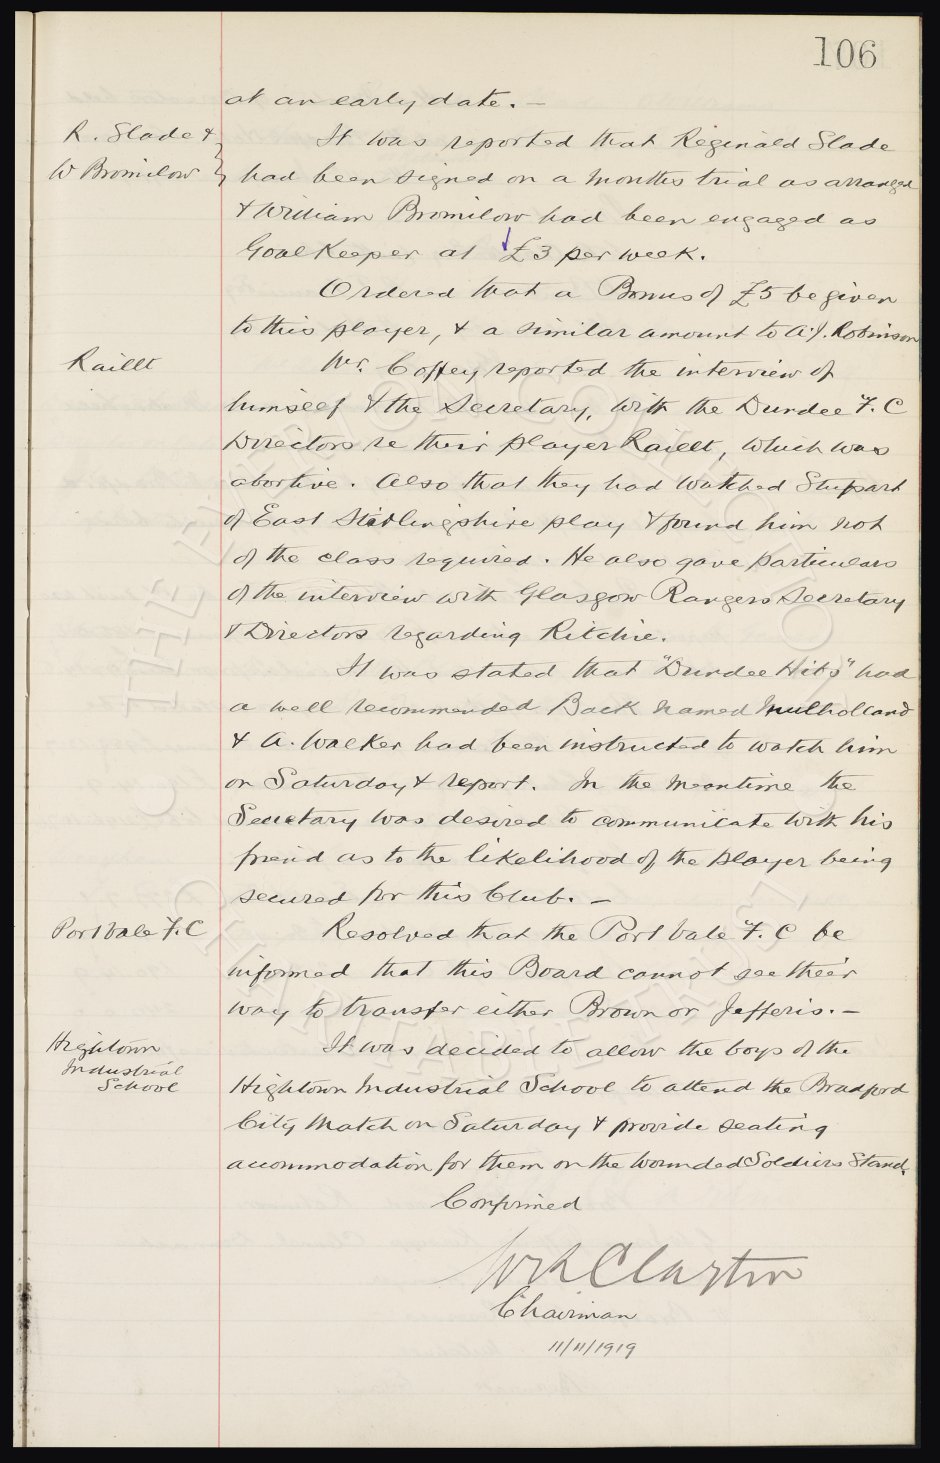 106
at an early date. —
R. Slade &
It was reported that Reginald Slade
W Bromilow
had been signed on a months trial as arranged
& William Bromilow had been engaged as
Goal Keeper at £3 per week.
Ordered that a Bonus of £5 be given
to this player, & a similar amount to A.J. Robinson
Raillt
Mr. Coffey reported the interview of
himself & the Secretary, with the Dundee F.C
Directors re their player Raillt, which was
abortive. Also that they had watched Stuppart
of East Stirlingshire play & found him not
of the class required. He also gave particulars
of the interview with Glasgow Rangers Secretary
& Directors regarding Ritchie.
It was stated that "Dundee Hibs" had
a well recommended Back named Mulholland
& A. Walker had been instructed to watch him
on Saturday & report. In the meantime the
Secretary was desired to communicate with his
friend as to the likelihood of the player being
secured for this Club. —
Port Vale F.C
Resolved that the Port Vale F.C be
informed that this Board cannot see their
way to transfer either Brown or Jefferis. —
Hightown
Industrial
School
It was decided to allow the boys of the
Hightown Industrial School to attend the Bradford
City Match on Saturday & provide seating
accommodation for them on the Wounded Soldiers Stand.
Confirmed
Wm R Clayton
Chairman
11/11/1919